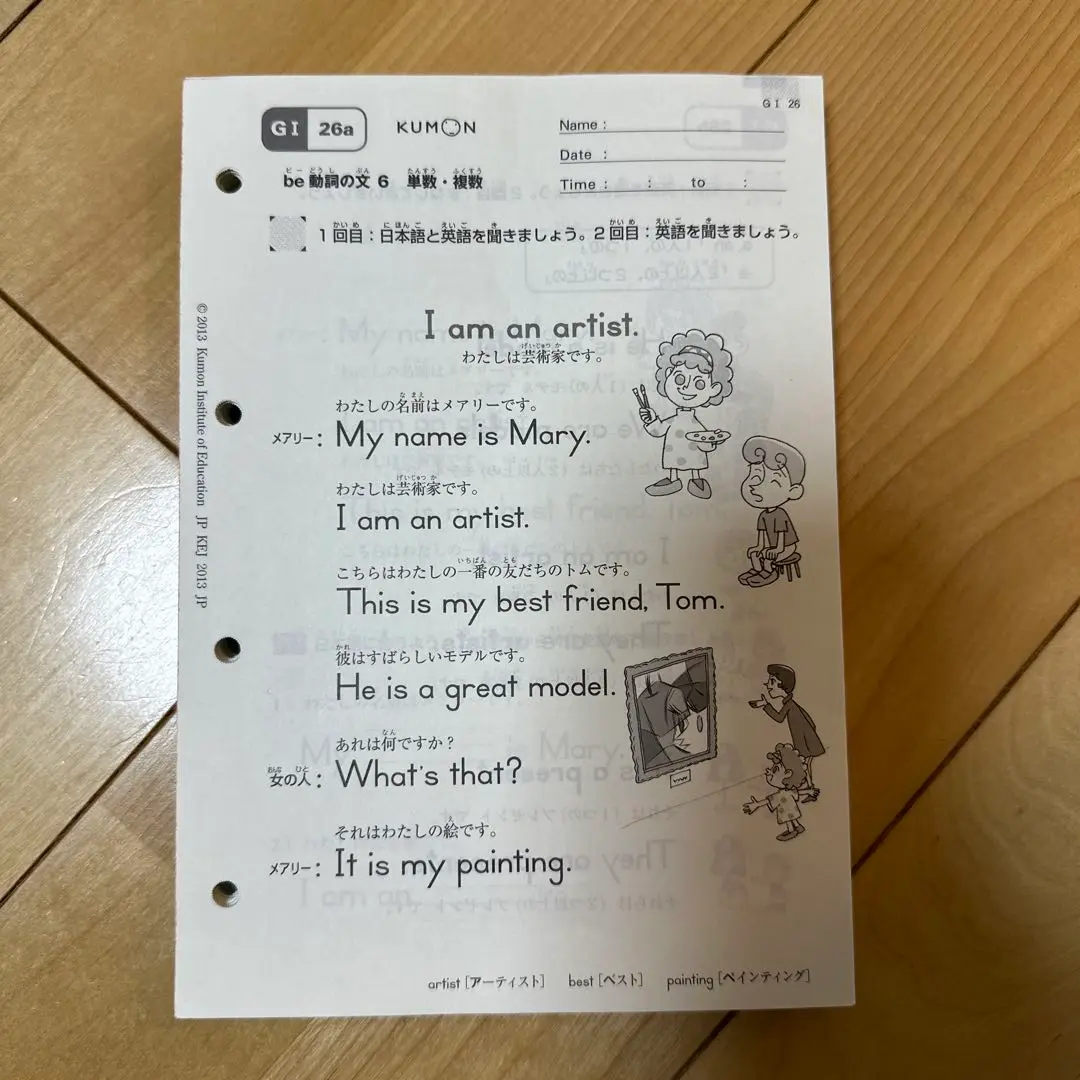 G I 26
G I 26a KUMON
Name :
Date :
Time : : to :
be動詞の文 6 単数・複数
1回目：日本語と英語を聞きましょう。2回目：英語を聞きましょう。
I am an artist.
わたしは芸術家です。
わたしの名前はメアリーです。
メアリー： My name is Mary.
わたしは芸術家です。
I am an artist.
こちらはわたしの一番の友だちのトムです。
This is my best friend, Tom.
彼はすばらしいモデルです。
He is a great model.
あれは何ですか？
女の人： What's that?
それはわたしの絵です。
メアリー： It is my painting.
artist［アーティスト］ best［ベスト］ painting［ペインティング］
© 2013 Kumon Institute of Education JP KEJ 2013 JP